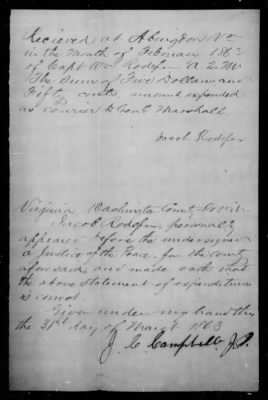 Recieved at Abingdon Va
in the Month of February 186
of Capt Wm Rodefer A 2. M
The Sum of Five Dollars and
Fifty cents amount expended
as Courier to Genl Marshall
Jacob Rodefer
Virginia, Washington County to wit.
Jacob Rodefer personaly
appeared before the undersigned
a Justice of the Peace, for the county
aforesaid, and made oath that
the above statement of expenditures
is correct
Given under my hand this
the 31st day of March 1863
J. C. Campbell J.P.